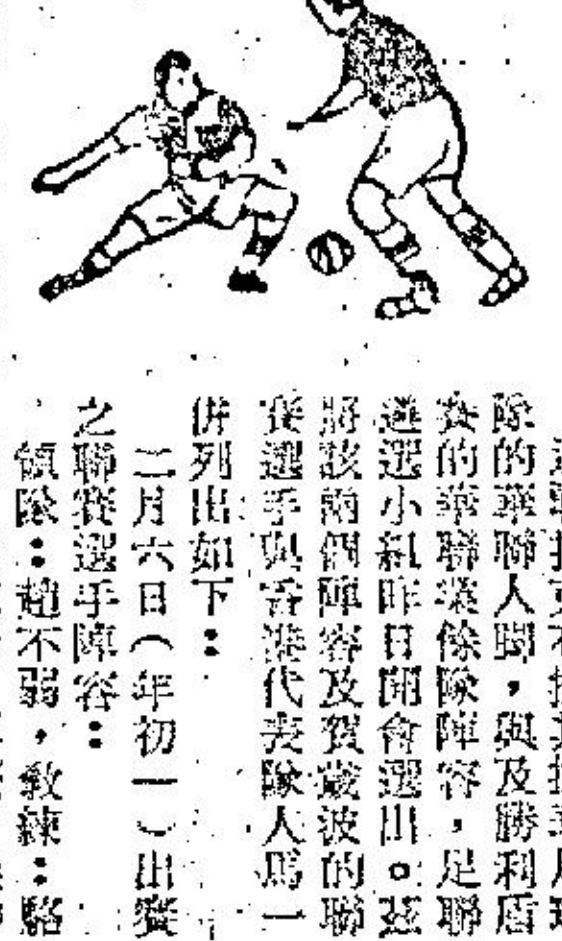 隊的華聯人脚，與及勝利盾
賽的華聯業餘隊陣容，足聯
遴選小組昨日開會選出。茲
將該兩個陣容及賀歲波的聯
賽選手與香港代表隊人馬一
併列出如下：
二月六日（年初一）出賽
之聯賽選手陣容：
領隊：趙不弱，敎練：駱